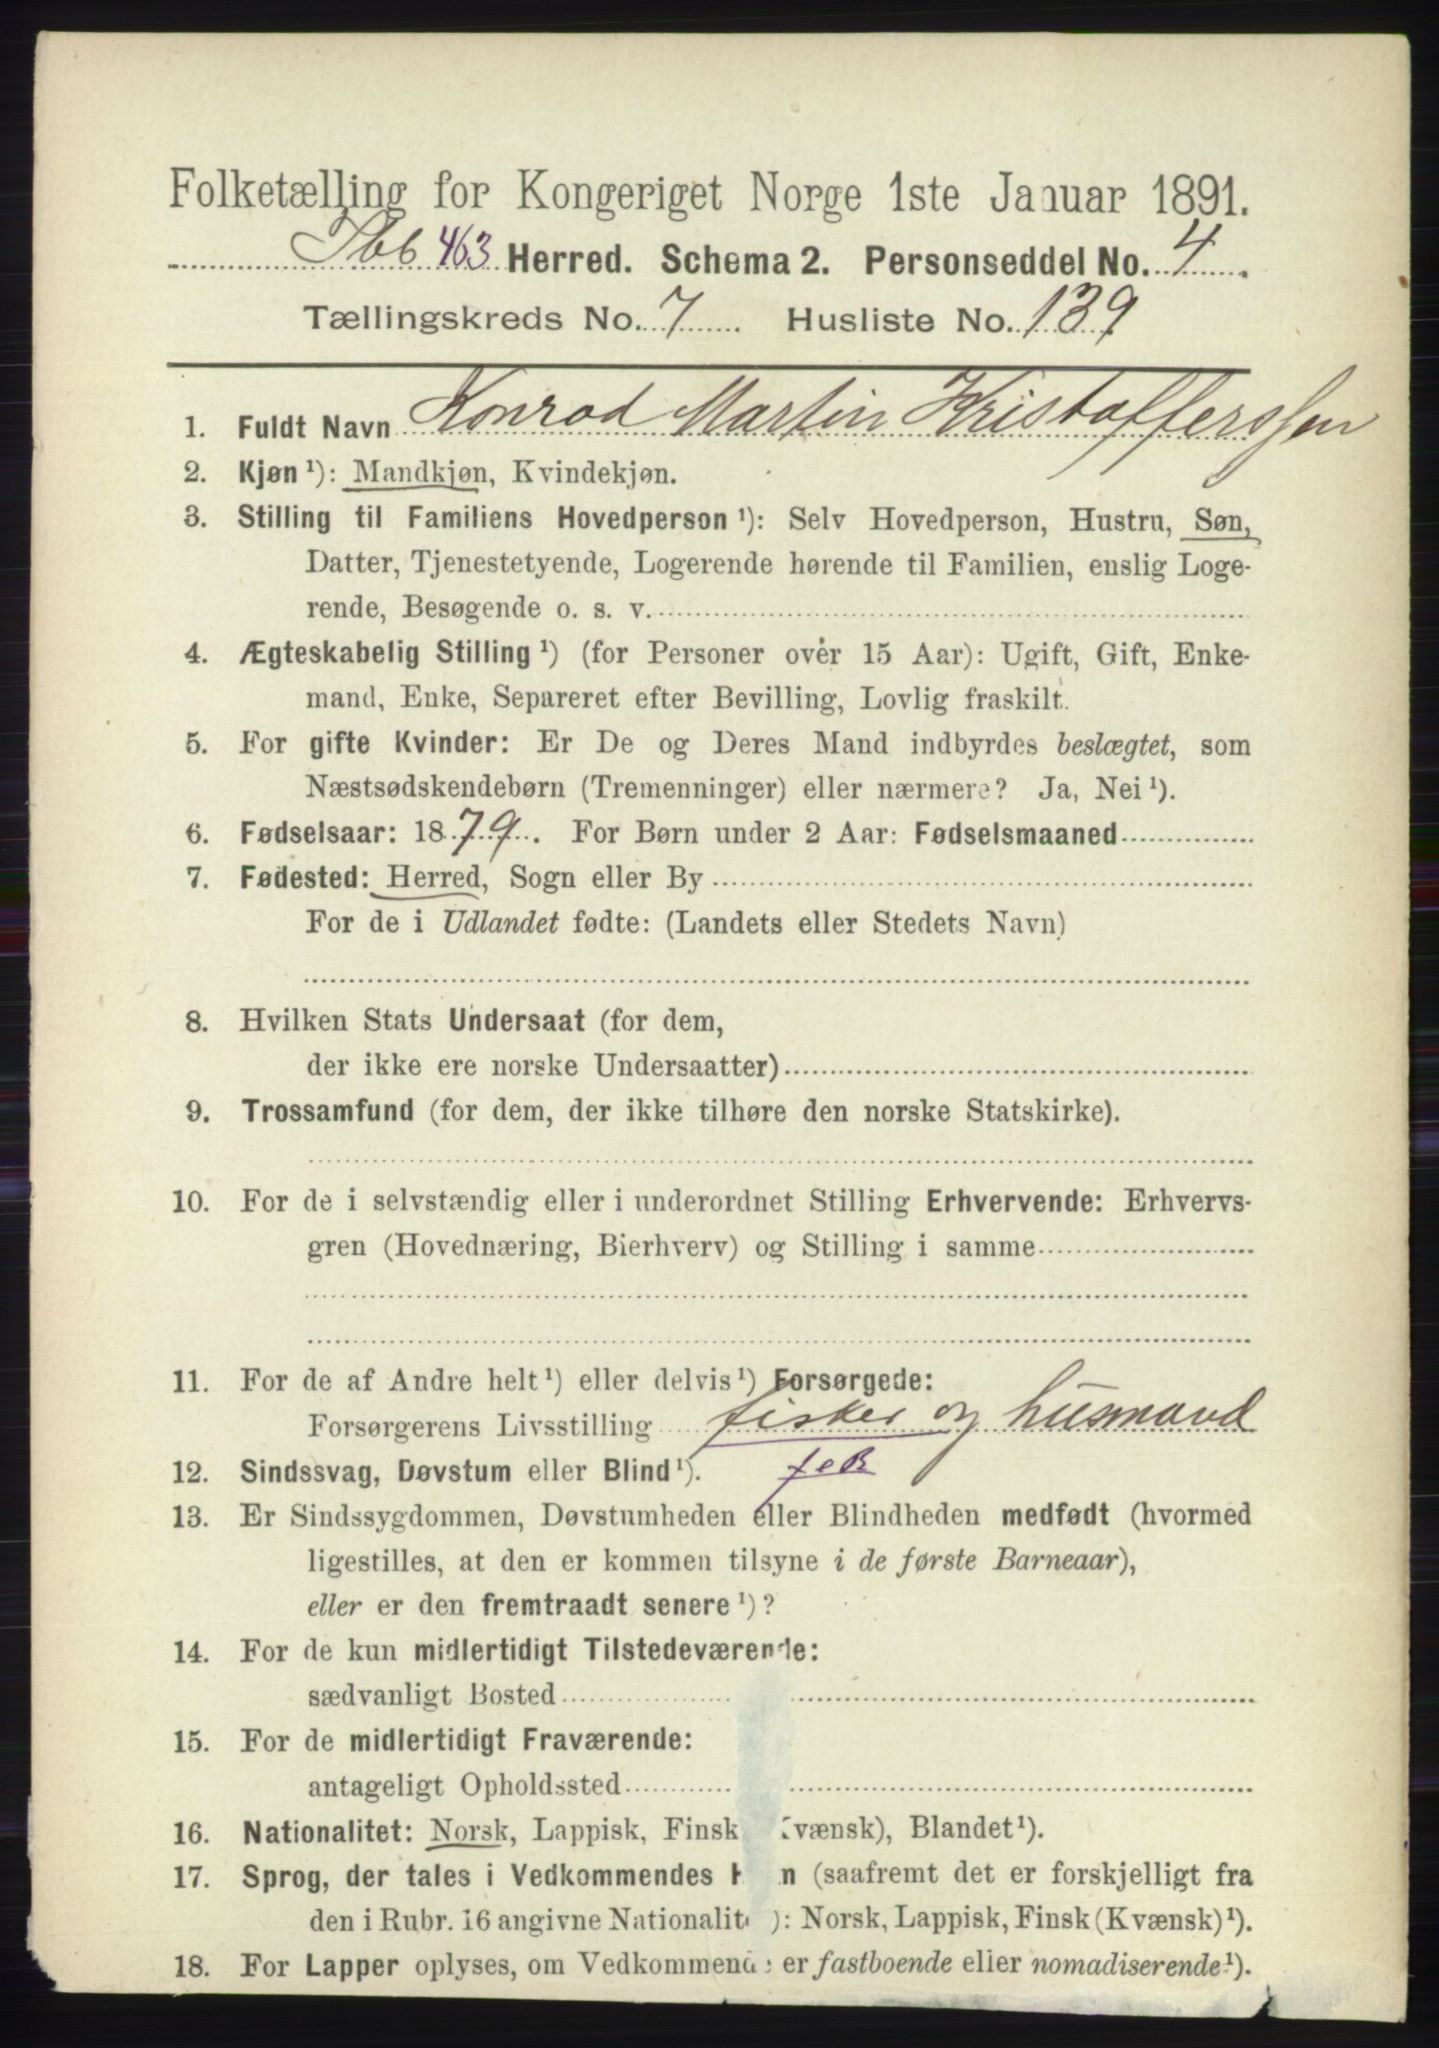 Folketælling for Kongeriget Norge 1ste Januar 1891.
Ibb 463 Herred. Schema 2. Personseddel No. 4
Tællingskreds No. 7 Husliste No. 139
1. Fuldt Navn Konrad Martin Kristofferssen
2. Kjøn ¹): Mandkjøn, Kvindekjøn.
3. Stilling til Familiens Hovedperson ¹): Selv Hovedperson, Hustru, Søn,
Datter, Tjenestetyende, Logerende hørende til Familien, enslig Loge-
rende, Besøgende o. s. v.
4. Ægteskabelig Stilling ¹) (for Personer over 15 Aar): Ugift, Gift, Enke-
mand, Enke, Separeret efter Bevilling, Lovlig fraskilt.
5. For gifte Kvinder: Er De og Deres Mand indbyrdes beslægtet, som
Næstsødskendebørn (Tremenninger) eller nærmere? Ja, Nei ¹).
6. Fødselsaar: 1879. For Børn under 2 Aar: Fødselsmaaned
7. Fødested: Herred, Sogn eller By
For de i Udlandet fødte: (Landets eller Stedets Navn)
8. Hvilken Stats Undersaat (for dem,
der ikke ere norske Undersaatter)
9. Trossamfund (for dem, der ikke tilhøre den norske Statskirke).
10. For de i selvstændig eller i underordnet Stilling Erhvervende: Erhvervs-
gren (Hovednæring, Bierhverv) og Stilling i samme
11. For de af Andre helt ¹) eller delvis ¹) Forsørgede:
Forsørgerens Livsstilling fisker og husmand
12. Sindssvag, Døvstum eller Blind ¹). feB
13. Er Sindssygdommen, Døvstumheden eller Blindheden medfødt (hvormed
ligestilles, at den er kommen tilsyne i de første Barneaar),
eller er den fremtraadt senere ¹)?
14. For de kun midlertidigt Tilstedeværende:
sædvanligt Bosted
15. For de midlertidigt Fraværende:
antageligt Opholdssted
16. Nationalitet: Norsk, Lappisk, Finsk (Kvænsk), Blandet ¹).
17. Sprog, der tales i Vedkommendes H n (saafremt det er forskjelligt fra
den i Rubr. 16 angivne Nationalitet): Norsk, Lappisk, Finsk (Kvænsk) ¹).
18. For Lapper oplyses, om Vedkommende er fastboende eller nomadiserende ¹).